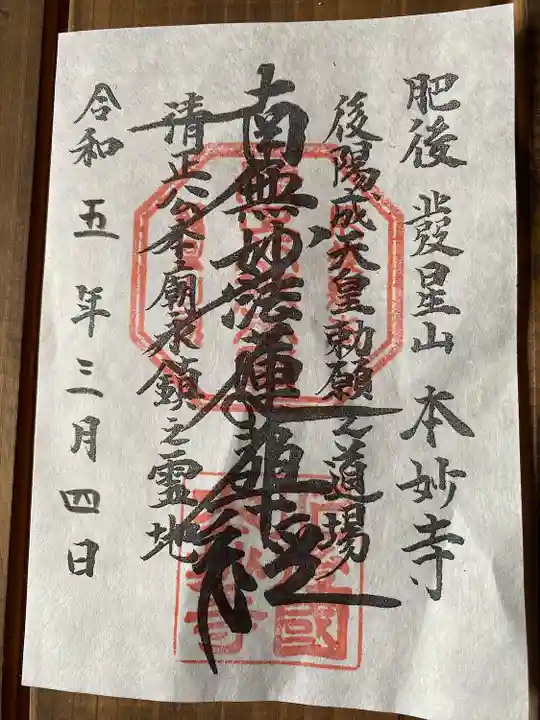 肥後 發星山 本妙寺
後陽成天皇勅願之道場
南無妙法蓮華経
清正公本廟永鎮之霊地
令和 五 年 三月 四日